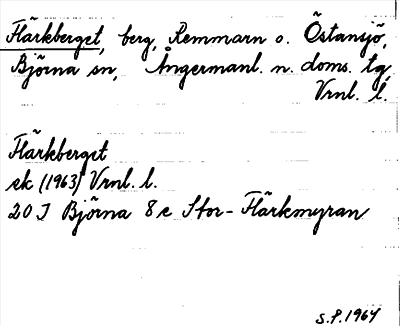 Flärkberget, berg, Remmarn o. Östansjö,
Björna sn, Ångermanl. n. doms. tg,
Vrnl. l.
Flärkberget
ek (1963) Vrnl. l.
20 J Björna 8 e Stor-Flärkmyran
S.P. 1964